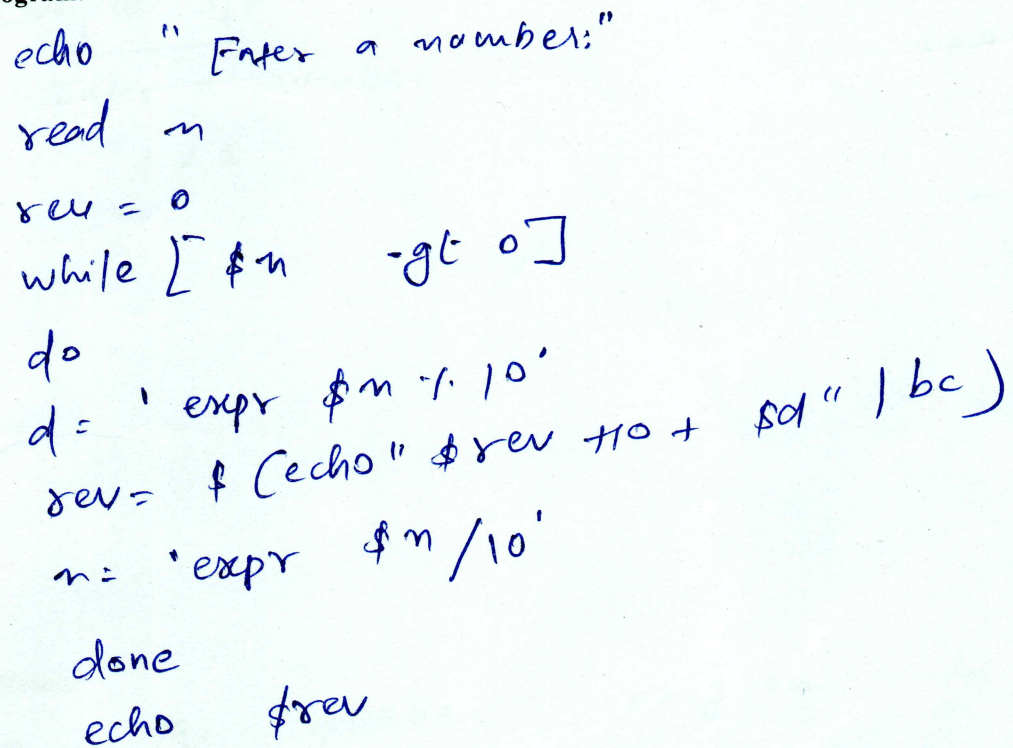 echo " Enter a number:"
read n
rev = 0
while [ $n -gt 0 ]
do
d = ' expr $n % 10'
rev = $ (echo " $rev *10 + $d " | bc )
n = 'expr $n /10'
done
echo $rev